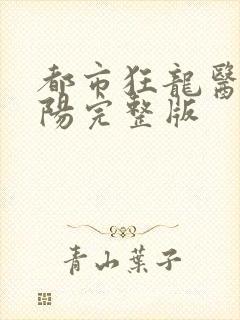 都市狂龍醫
陽完整版
青山葉子